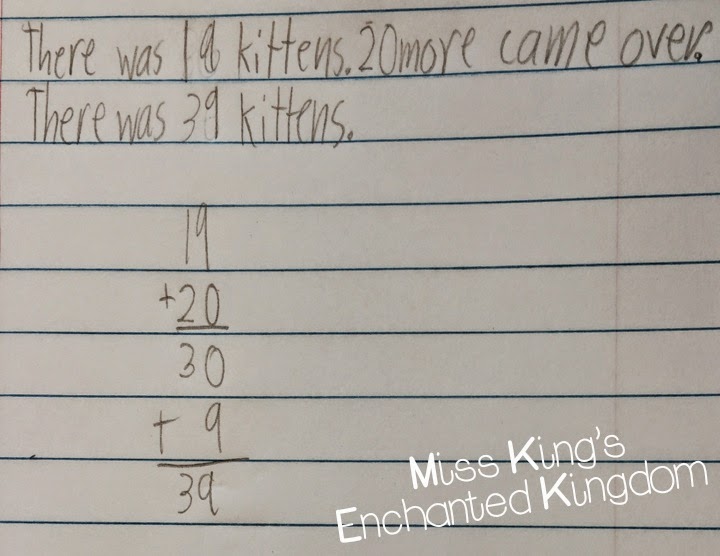 There was 19 kittens. 20 more came over.
There was 39 kittens.
19
+20
30
+ 9
39
Miss King's
Enchanted Kingdom